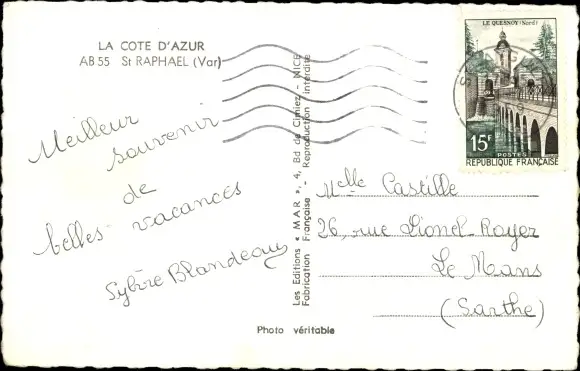 LA COTE D'AZUR
AB 55 St RAPHAEL (Var)
Meilleur
souvenir
de
belles vacances
Blandeau
Les Editions « MAR », 4, Bd de Cimiez - NICE
Fabrication Française - Reproduction interdite
LE QUESNOY (Nord)
15F
POSTES
REPUBLIQUE FRANÇAISE
Melle Castille
26, rue Lionel-Royer
Le Mans
(Sarthe)
Photo véritable